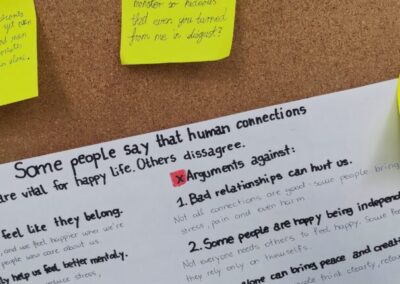 yet even
and man
alone.
monster so hideous
that even you turned
from me in disgust?
Some people say that human connections
are vital for happy life. Others dissagree.
feel like they belong.
, and we feel happier when we're
people who care about us.
help us feel better mentaly.
stress,
x Arguments against:
1. Bad relationships can hurt us.
Not all connections are good - some people bring
stress, pain and even harm
2. Some people are happy being independ
Not everyone needs others to feel happy. Some feel
they rely only on themselfs.
alone can bring peace and creat
think clearly, relax